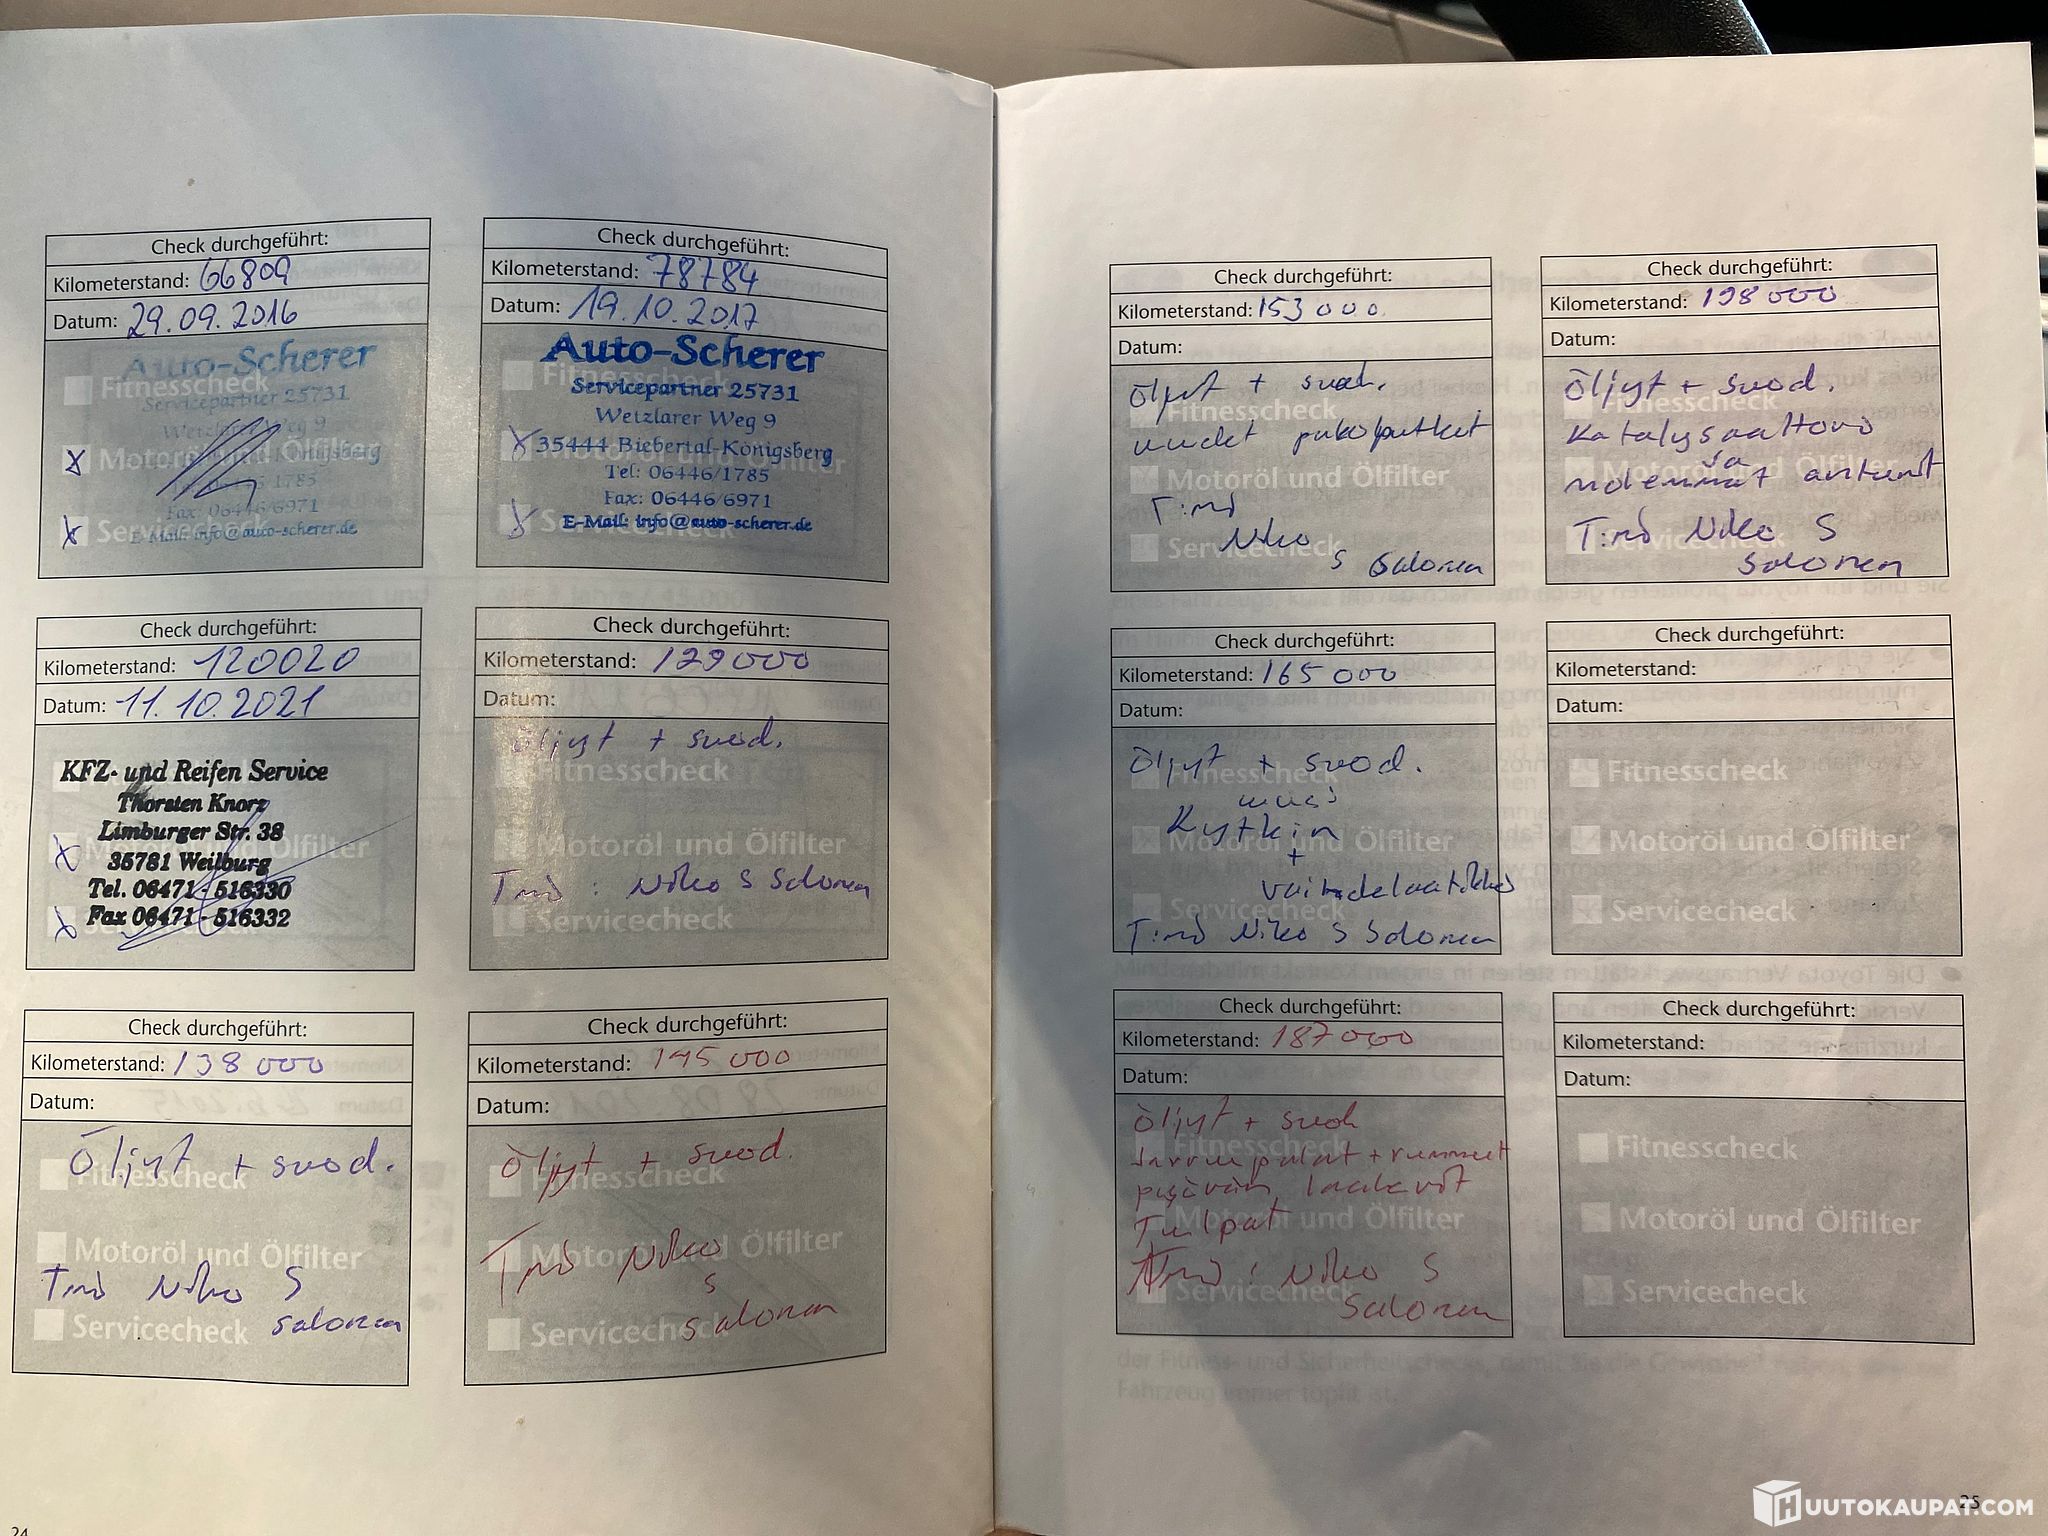 Check durchgeführt:
Kilometerstand: 66809
Datum: 29.09.2016
Auto-Scherer
Fitnesscheck
Servicepartner 25731
Wetzlarer Weg 9
x Motoröl und Ölfilter
Tel: 06446/1785
Fax: 06446/6971
x Servicecheck
E-Mail: info@auto-scherer.de
Check durchgeführt:
Kilometerstand: 78784
Datum: 19.10.2017
Auto-Scherer
Fitnesscheck
Servicepartner 25731
Wetzlarer Weg 9
x 35444 Biebertal-Königsberg
Motoröl und Ölfilter
Tel: 06446/1785
Fax: 06446/6971
x Servicecheck
E-Mail: info@auto-scherer.de
Check durchgeführt:
Kilometerstand: 120020
Datum: 11.10.2021
KFZ- und Reifen Service
Thorsten Knorz
Limburger Str. 38
x Motoröl und Ölfilter
35781 Weilburg
Tel. 06471-516330
Fax 06471-516332
x Servicecheck
Check durchgeführt:
Kilometerstand: 129000
Datum:
Öljyt + suod.
Fitnesscheck
Motoröl und Ölfilter
Tmi: Niko S Salonen
Servicecheck
Check durchgeführt:
Kilometerstand: 138 000
Datum:
Öljyt + suod.
Fitnesscheck
Motoröl und Ölfilter
Tmi Niko S
Servicecheck salonen
Check durchgeführt:
Kilometerstand: 145 000
Datum:
Öljyt + suod.
Fitnesscheck
Tmi Niko
Motoröl und Ölfilter
S
Servicecheck salonen
24
Check durchgeführt:
Kilometerstand: 153 000
Datum:
Öljyt + suod.
Fitnesscheck
uudet pakoputket
Motoröl und Ölfilter
Tmi
Niko
Servicecheck
S Salonen
Check durchgeführt:
Kilometerstand: 198 000
Datum:
Öljyt + suod.
Fitnesscheck
Katalysaattori
ja
Motoröl und Ölfilter
molemmat anturit
Tmi Niko S
Servicecheck
Salonen
Check durchgeführt:
Kilometerstand: 165 000
Datum:
Öljyt + suod.
Fitnesscheck
uusi
Kytkin
Motoröl und Ölfilter
+
vaihdelaatikko
Servicecheck
Tmi Niko S Salonen
Check durchgeführt:
Kilometerstand:
Datum:
Fitnesscheck
Motoröl und Ölfilter
Servicecheck
Check durchgeführt:
Kilometerstand: 187 000
Datum:
Öljyt + suod
Fitnesscheck
Jarrupalat + rummut
laakerit
Tulpat
Motoröl und Ölfilter
Tmi: Niko S
Servicecheck
Salonen
Check durchgeführt:
Kilometerstand:
Datum:
Fitnesscheck
Motoröl und Ölfilter
Servicecheck
25
HUUTOKAUPAT.COM